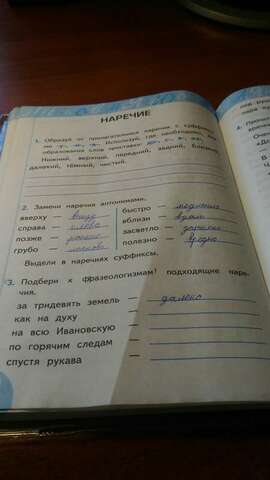 НАРЕЧИЕ
1. Образуй от прилагательных наречия с суффиксами -у-, -о-, -а-. Используй, где необходимо, для
образования слов приставки
Нижний, верхний, передний, задний, близкий,
далёкий, тёмный, чистый.
2. Замени наречия антонимами.
вверху — внизу быстро — медленно
справа — слева вблизи — вдали
позже — раньше засветло —
грубо — полезно — вредно
Выдели в наречиях суффиксы.
3. Подбери к фразеологизмам подходящие наре-
чия.
за тридевять земель — далеко
как на духу —
на всю Ивановскую —
по горячим следам —
спустя рукава —